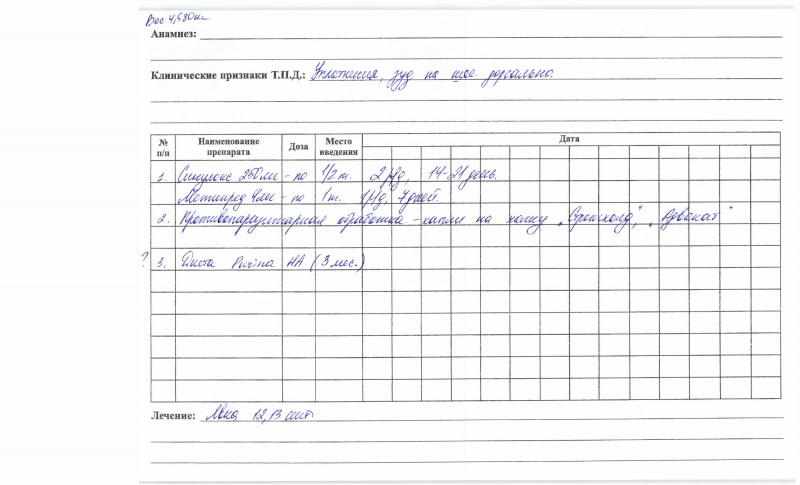 Вес 4,580 кг
Анамнез:
Клинические признаки Т.П.Д.: Уплотнения, зуд на шее дорсально.
№ п/п Наименование препарата Доза Место введения Дата
1. Синулокс 250мг - по 1/2 т. 2 р/д, 14-21 день.
Метипред 4мг - по 1 т. 1р/д. 7 дней.
2. Противопаразитарная обработка - капли на холку „Стронгхолд", „Адвокат"
? 3. Диета Purina HA (3 мес.)
Лечение: Явка 12,13 сент